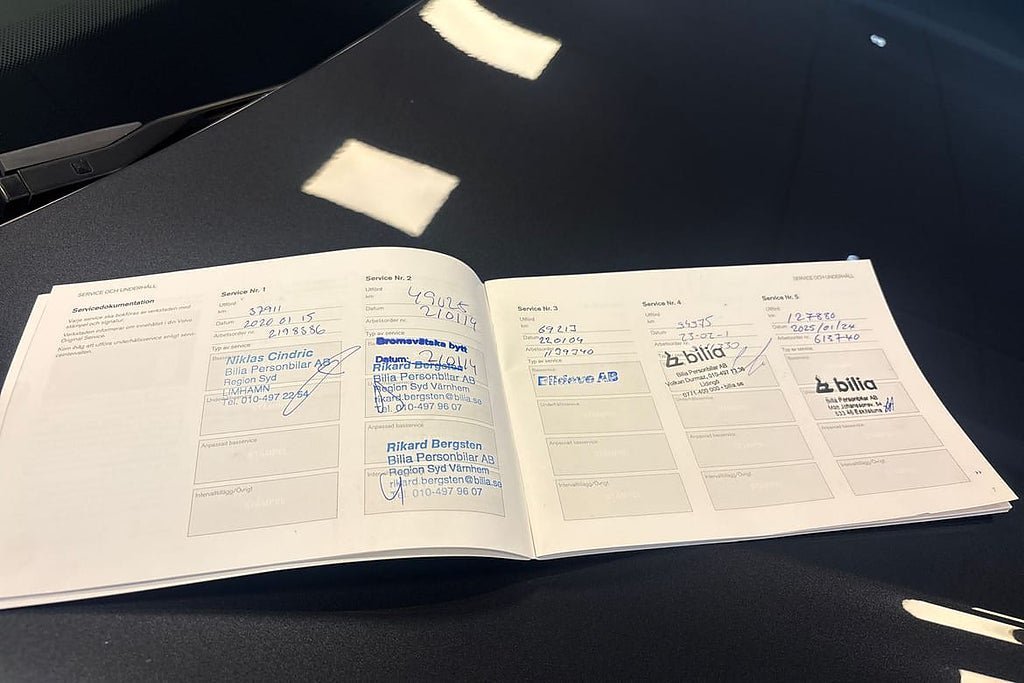 SERVICE OCH UNDERHÅLL
Servicedokumentation
Varje service ska bokföras av verkstaden med
stämpel och signatur.
Verkstaden informerar om innehållet i din Volvo
Original Service.
Kom ihåg att utföra underhållsservice enligt servi-
Service Nr. 1
Utförd
km 37911
Datum 2020 01 15
Arbetsorder nr. 2198886
Typ av service
Niklas Cindric
Bilia Personbilar AB
Region Syd
LIMHAMN
Tel. 010-497 22 54
Anpassad basservice
Intervalltillägg/Övrigt
Service Nr. 2
Utförd
km 49425
Datum 210114
Arbetsorder nr.
Typ av service
Bromsvätska bytt
Datum: 210114
Rikard Bergsten
Bilia Personbilar AB
Region Syd Värnhem
rikard.bergsten@bilia.se
010-497 96 07
Rikard Bergsten
Bilia Personbilar AB
Region Syd Värnhem
rikard.bergsten@bilia.se
010-497 96 07
SERVICE OCH UNDERHÅLL
Service Nr. 3
Utförd
km 69213
Datum 220104
Arbetsorder nr.
Typ av service
Basservice
Underhållsservice
Anpassad basservice
Intervalltillägg/Övrigt
Service Nr. 4
Utförd
km
Datum 23-02-1
Arbetsorder nr.
Typ av service
bilia
Bilia Personbilar AB
Anpassad basservice
Intervalltillägg/Övrigt
Service Nr. 5
Utförd
km 127880
Datum 2025/01/24
Arbetsorder nr. 613740
Typ av service
Basservice
bilia
Bilia Personbilar AB
Anpassad basservice
Intervalltillägg/Övrigt